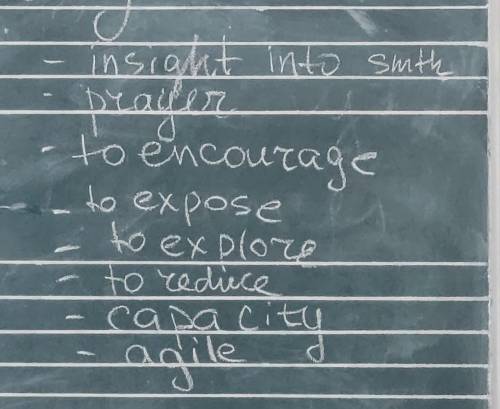 - insight into smth
- prayer
- to encourage
- to expose
- to explore
- to reduce
- capacity
- agile